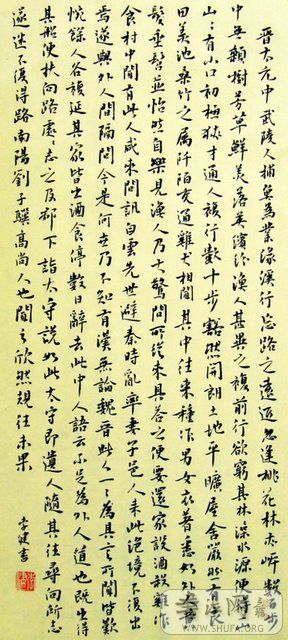 晉太元中武陵人捕魚為業緣溪行忘路之遠近忽逢桃花林夾岸數百步
中無雜樹芳草鮮美落英繽紛漁人甚異之復前行欲窮其林盡水源便得
山々有小口初極狹才通人復行數十步豁然開朗土地平曠屋舍儼然有良
田美池桑竹之屬阡陌交通雞犬相聞其中往來種作男女衣著悉如外
髮垂髫並怡然自樂見漁人乃大驚問所從來具答之便要還家設酒殺雞作
食村中聞有此人咸來問訊自雲先世避秦時亂率妻子邑人來此絕境不復出
焉遂與外人間隔問今是何世乃不知有漢無論魏晉此人一一為具言所聞皆歎
惋餘人各復延其家皆出酒食停數日辭去此中人語云不足為外人道也既出得
其船便扶向路處々志之及郡下詣太守說如此太守即遣人隨其往尋向所志
遂迷不復得路南陽劉子驥高尚人也聞之欣然規往未果
李健書
WWW.SHUFA.COM